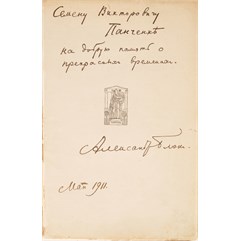 Семену Викторовичу
Панченке
на добрую память о
прекрасных временах.
Александр Блок.
Май 1911.